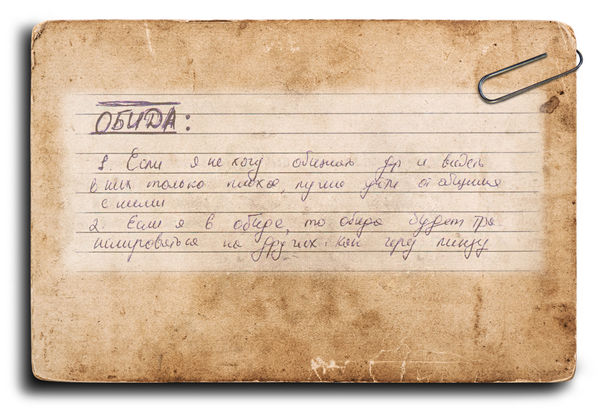 ОБИДА:
1 Если я не хочу обижать др и видеть
в них только плохое, лучше уйти от общения
с ними
2. Если я в обиде, то обида будет тра
нслироваться на других как через линзу